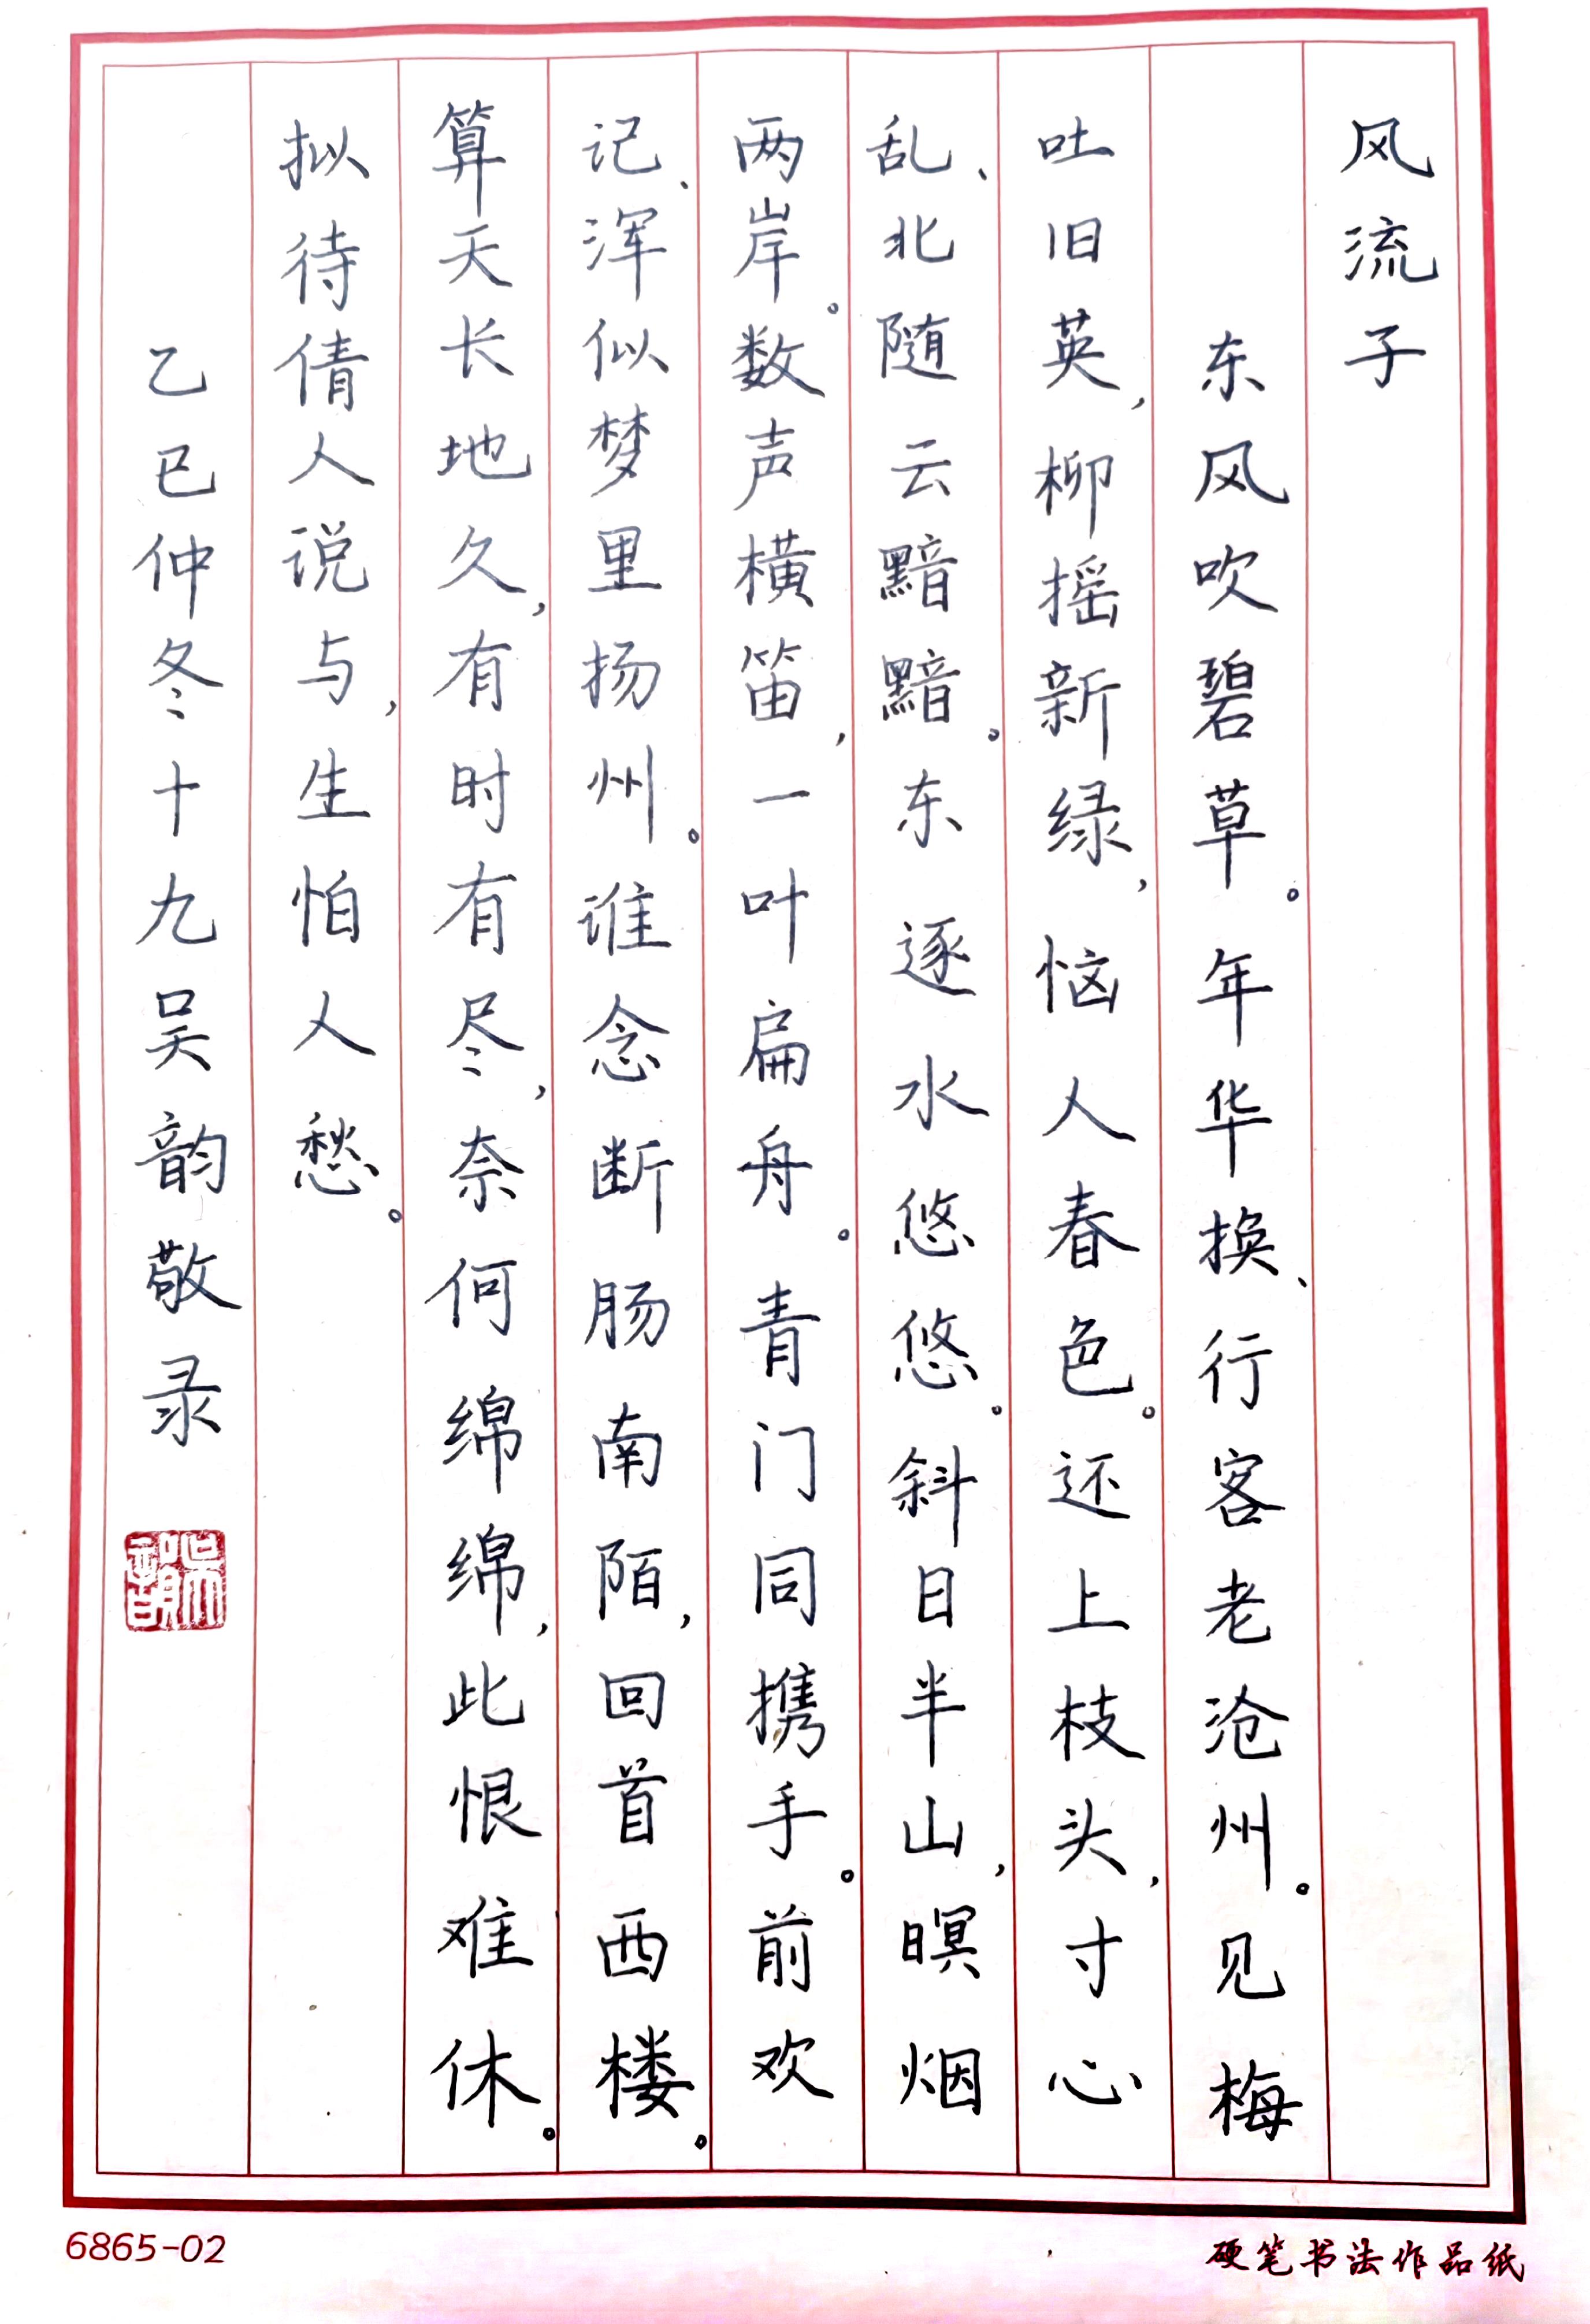 风流子
东风吹碧草。年华换、行客老沧州。见梅
吐旧英，柳摇新绿，恼人春色。还上枝头，寸心
乱、北随云黯黯。东逐水悠悠。斜日半山，暝烟
两岸。数声横笛，一叶扁舟。青门同携手。前欢
记、浑似梦里扬州。谁念断肠南陌，回首西楼。
算天长地久，有时有尽，奈何绵绵，此恨难休。
拟待倩人说与，生怕人愁。
乙巳仲冬十九吴韵敬录
吴韵
6865-02
硬笔书法作品纸